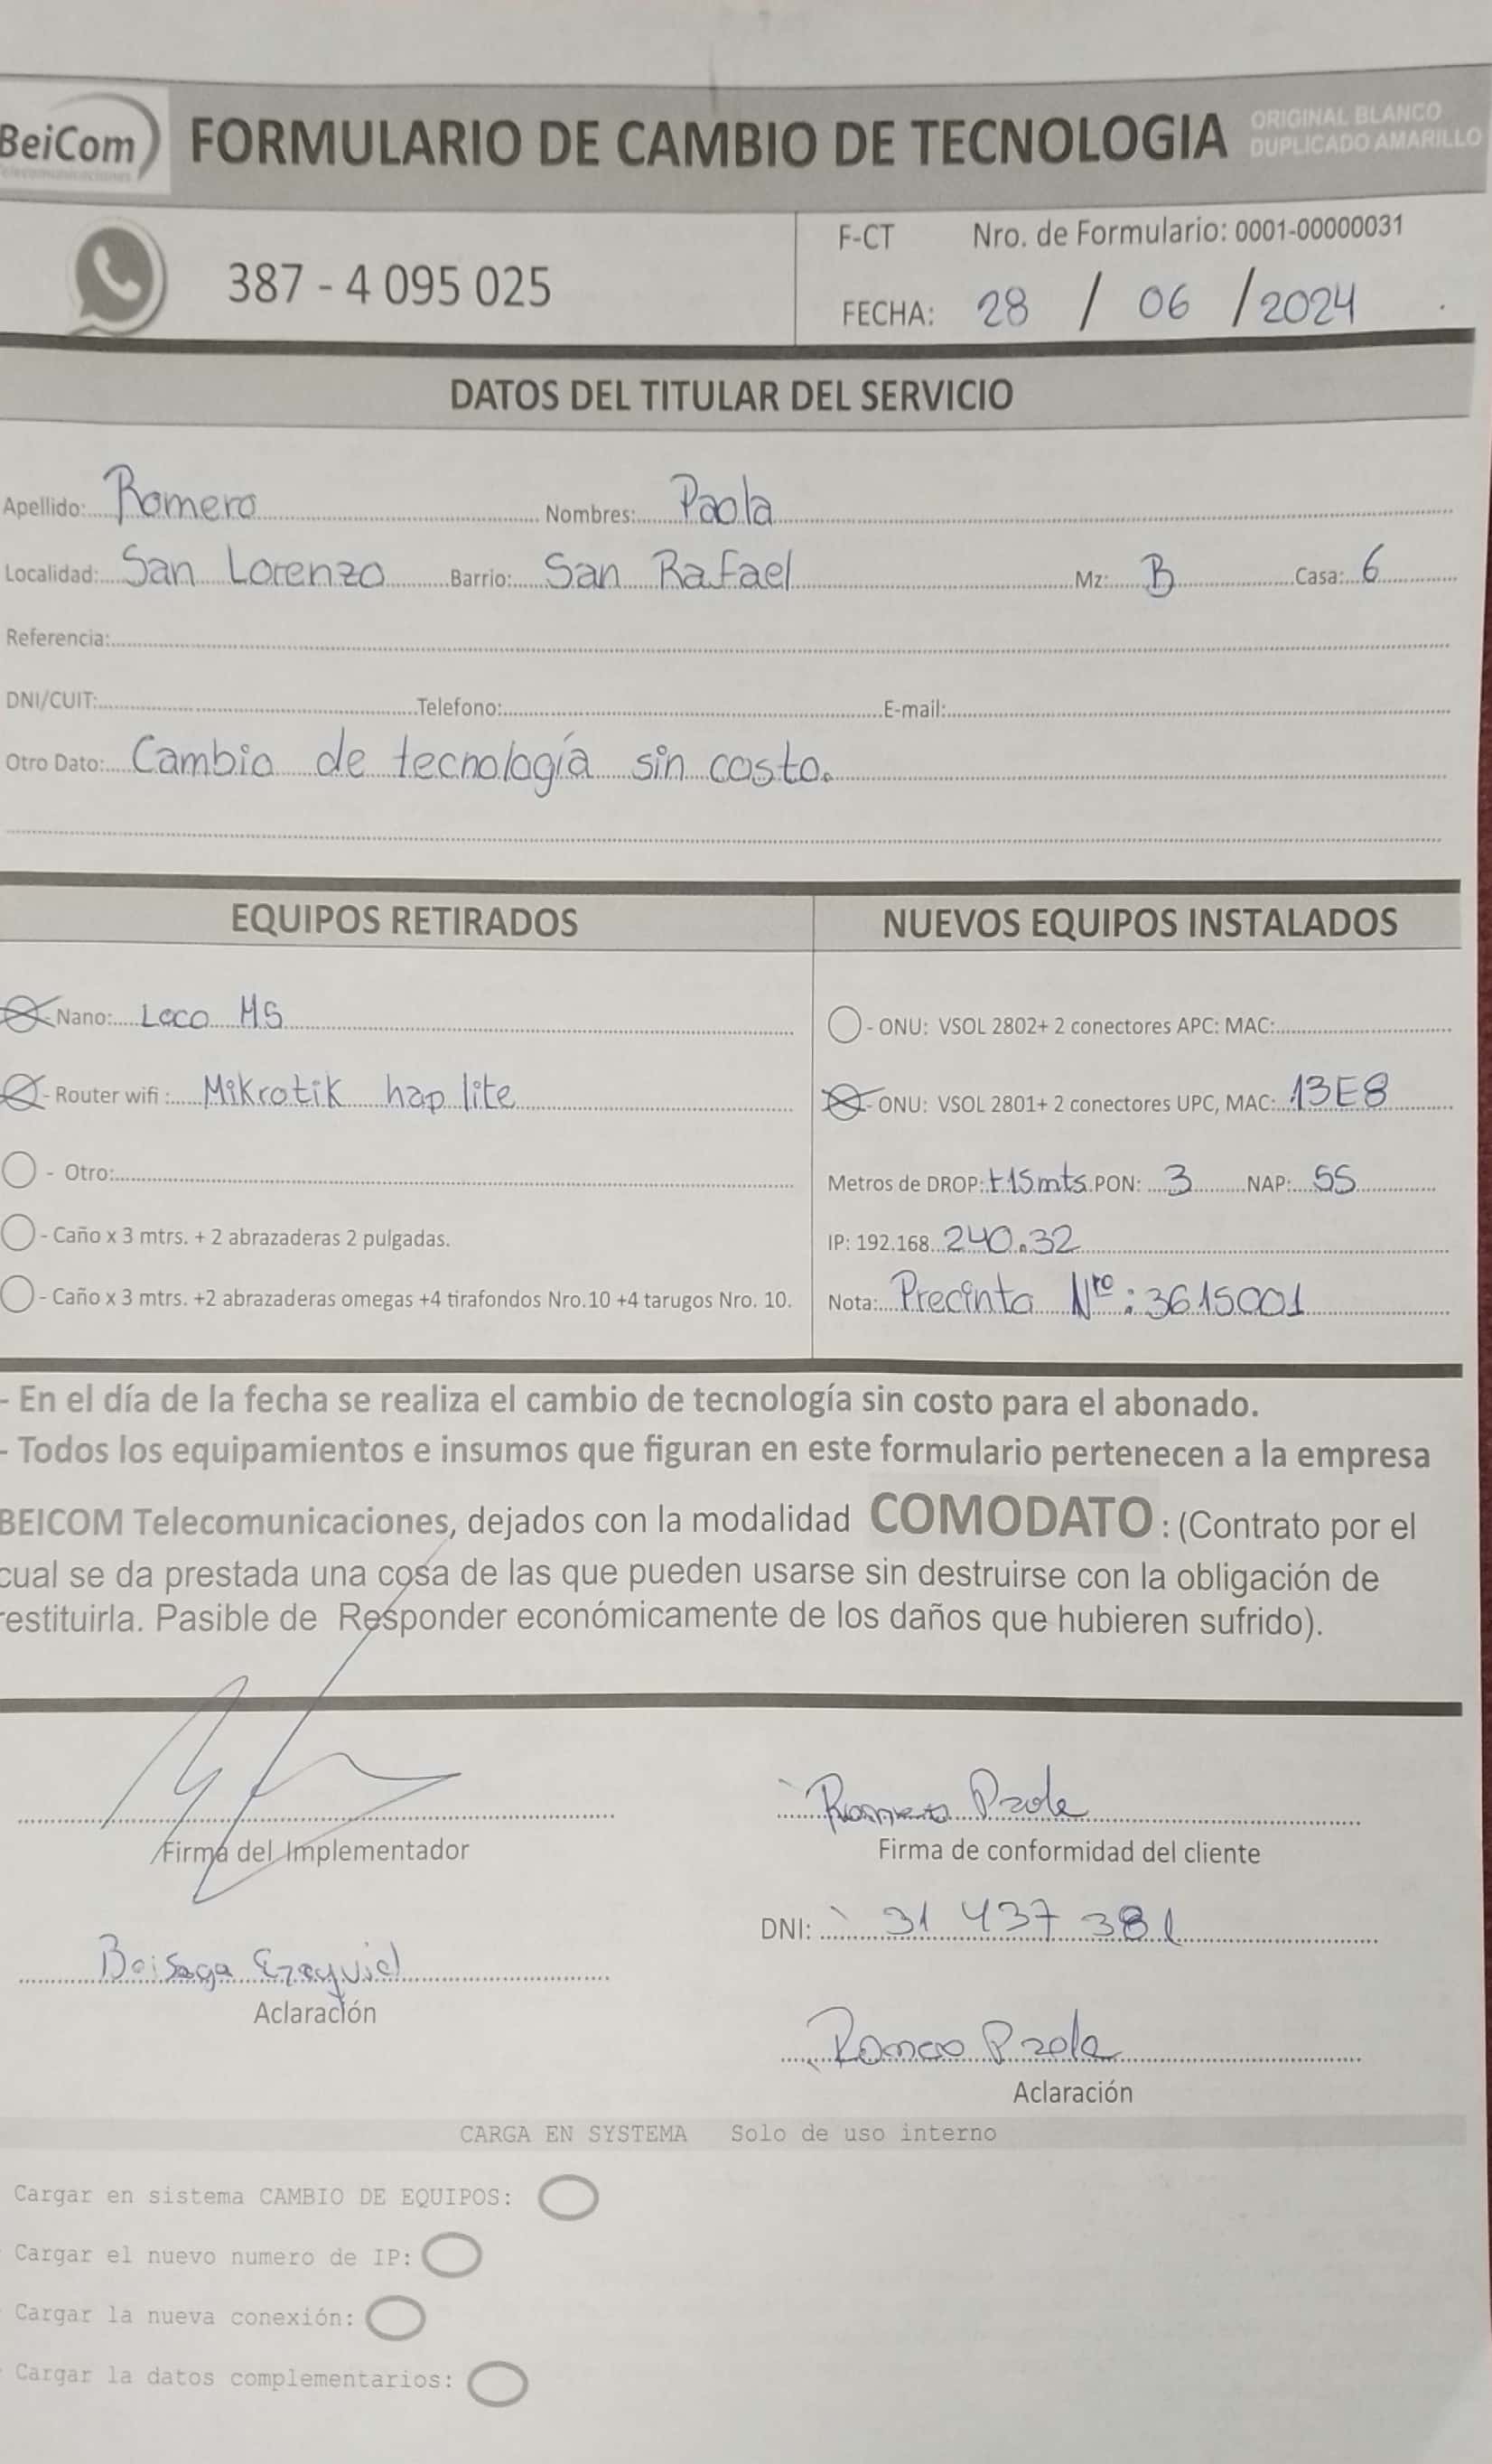 BeiCom
Telecomunicaciones
FORMULARIO DE CAMBIO DE TECNOLOGIA
ORIGINAL BLANCO
DUPLICADO AMARILLO
387 - 4 095 025
F-CT Nro. de Formulario: 0001-00000031
FECHA: 28 / 06 / 2024
DATOS DEL TITULAR DEL SERVICIO
Apellido: Romero Nombres: Paola
Localidad: San Lorenzo Barrio: San Rafael Mz: B Casa: 6
Referencia:
DNI/CUIT: Telefono: E-mail:
Otro Dato: Cambio de tecnología sin costo.
EQUIPOS RETIRADOS
- Nano: Loco M5
- Router wifi : Mikrotik hap lite
- Otro:
- Caño x 3 mtrs. + 2 abrazaderas 2 pulgadas.
- Caño x 3 mtrs. +2 abrazaderas omegas +4 tirafondos Nro.10 +4 tarugos Nro. 10.
NUEVOS EQUIPOS INSTALADOS
- ONU: VSOL 2802+ 2 conectores APC: MAC:
- ONU: VSOL 2801+ 2 conectores UPC, MAC: 13E8
Metros de DROP: +15mts PON: 3 NAP: 55
IP: 192.168. 240.32
Nota: Precinto Nro: 3615001
- En el día de la fecha se realiza el cambio de tecnología sin costo para el abonado.
- Todos los equipamientos e insumos que figuran en este formulario pertenecen a la empresa
BEICOM Telecomunicaciones, dejados con la modalidad COMODATO : (Contrato por el
cual se da prestada una cosa de las que pueden usarse sin destruirse con la obligación de
restituirla. Pasible de Responder económicamente de los daños que hubieren sufrido).
Romero Paola
Firma del Implementador
Firma de conformidad del cliente
DNI: 31 437 381
Ezequiel
Aclaración
Romero Paola
Aclaración
CARGA EN SYSTEMA Solo de uso interno
Cargar en sistema CAMBIO DE EQUIPOS:
Cargar el nuevo numero de IP:
Cargar la nueva conexión:
Cargar la datos complementarios: